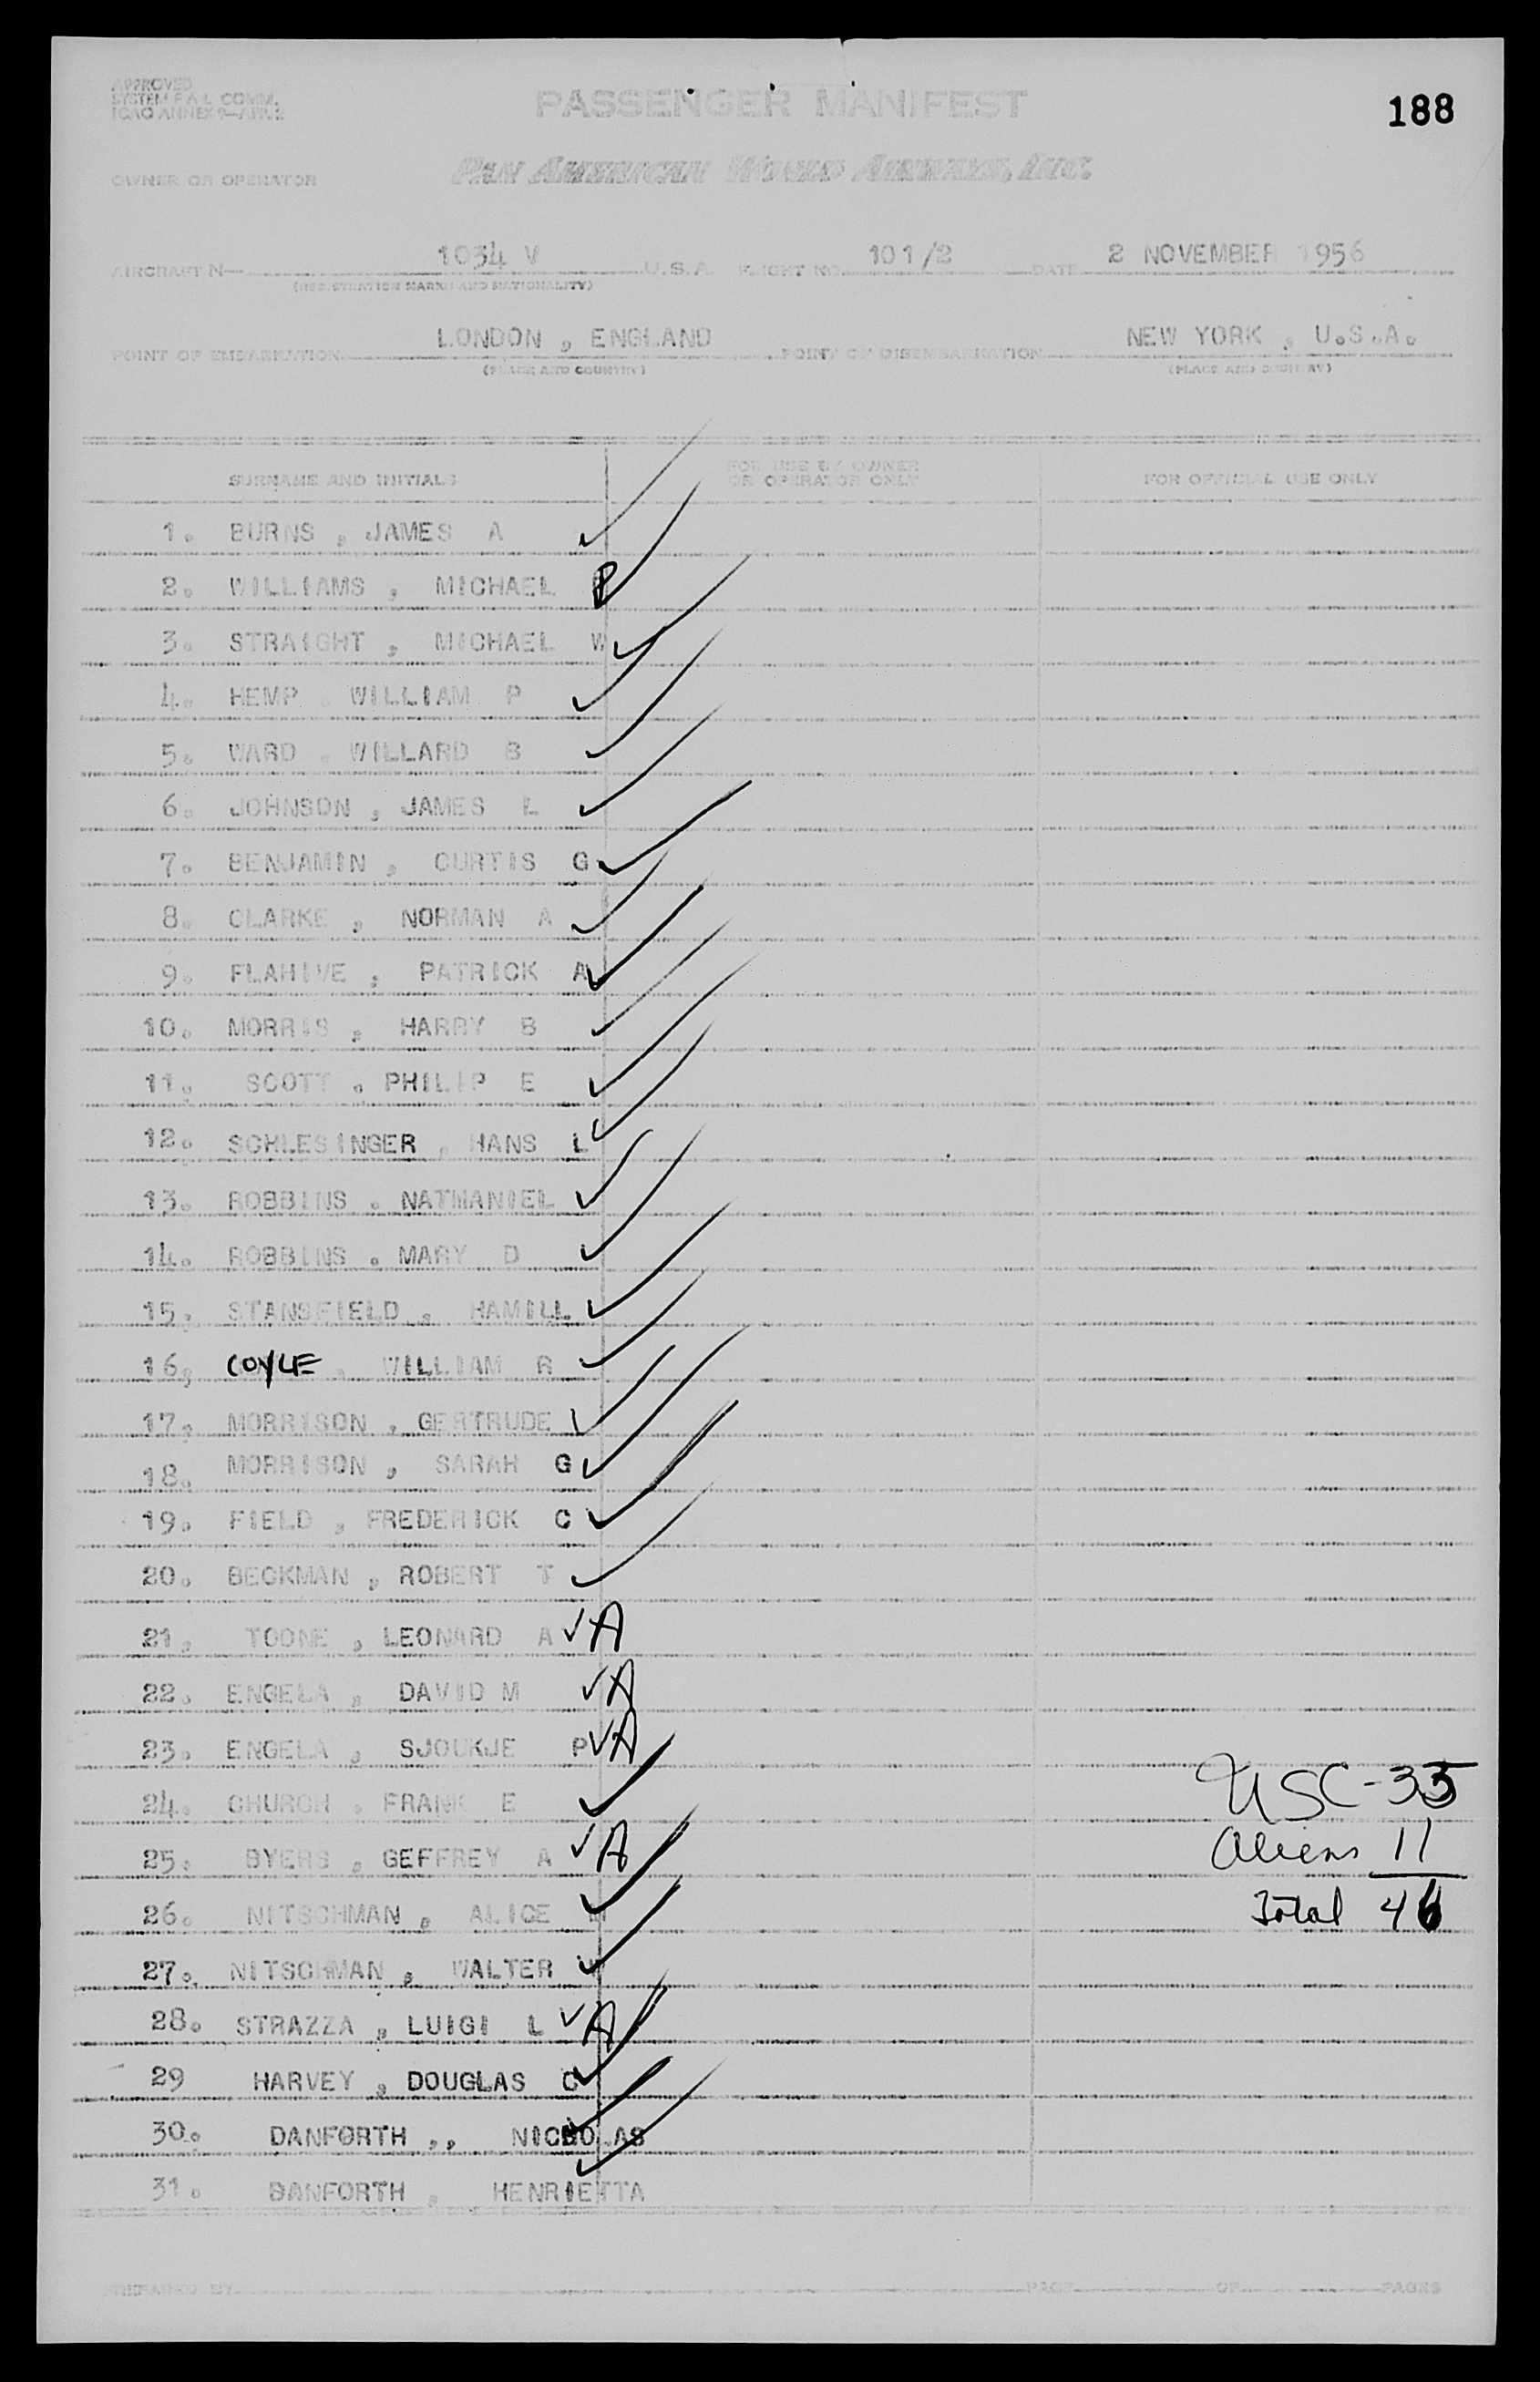 188
APPROVED
SYSTEM F.A.L. COMM.
ICAO ANNEX 9—APP. 2
PASSENGER MANIFEST
OWNER OR OPERATOR PAN AMERICAN WORLD AIRWAYS, INC.
AIRCRAFT N— 1034 V U.S.A. FLIGHT NO. 101/2 DATE 2 NOVEMBER 1956
(REGISTRATION MARKS AND NATIONALITY)
POINT OF EMBARKATION LONDON , ENGLAND POINT OF DISEMBARKATION NEW YORK , U.S.A.
(PLACE AND COUNTRY) (PLACE AND COUNTRY)
SURNAME AND INITIALS FOR USE BY OWNER OR OPERATOR ONLY FOR OFFICIAL USE ONLY
1. BURNS , JAMES A ✓
2. WILLIAMS , MICHAEL P ✓
3. STRAIGHT , MICHAEL W ✓
4. HEMP , WILLIAM P ✓
5. WARD , WILLARD B ✓
6. JOHNSON , JAMES L ✓
7. BENJAMIN , CURTIS G ✓
8. CLARKE , NORMAN A ✓
9. FLAHIVE , PATRICK A ✓
10. MORRIS , HARRY B ✓
11. SCOTT , PHILIP E ✓
12. SCHLESINGER , HANS L ✓
13. ROBBINS , NATHANIEL ✓
14. ROBBINS , MARY D ✓
15. STANSFIELD , HAMILL ✓
16. COYLE , WILLIAM R ✓
17. MORRISON , GERTRUDE ✓
18. MORRISON , SARAH G ✓
19. FIELD , FREDERICK C ✓
20. BECKMAN , ROBERT T ✓
21. TOONE , LEONARD A ✓ A
22. ENGELA , DAVID M ✓ A
23. ENGELA , SJOUKJE P ✓ A
24. CHURCH , FRANK E ✓
25. BYERS , GEFFREY A ✓ A
26. NITSCHMAN , ALICE ✓
27. NITSCHMAN , WALTER ✓
28. STRAZZA , LUIGI L ✓ A
29 HARVEY , DOUGLAS C ✓
30. DANFORTH ,, NICHOLAS ✓
31. DANFORTH , HENRIETTA ✓
USC - 35
Aliens 11
Total 46
PREPARED BY PAGE OF PAGES